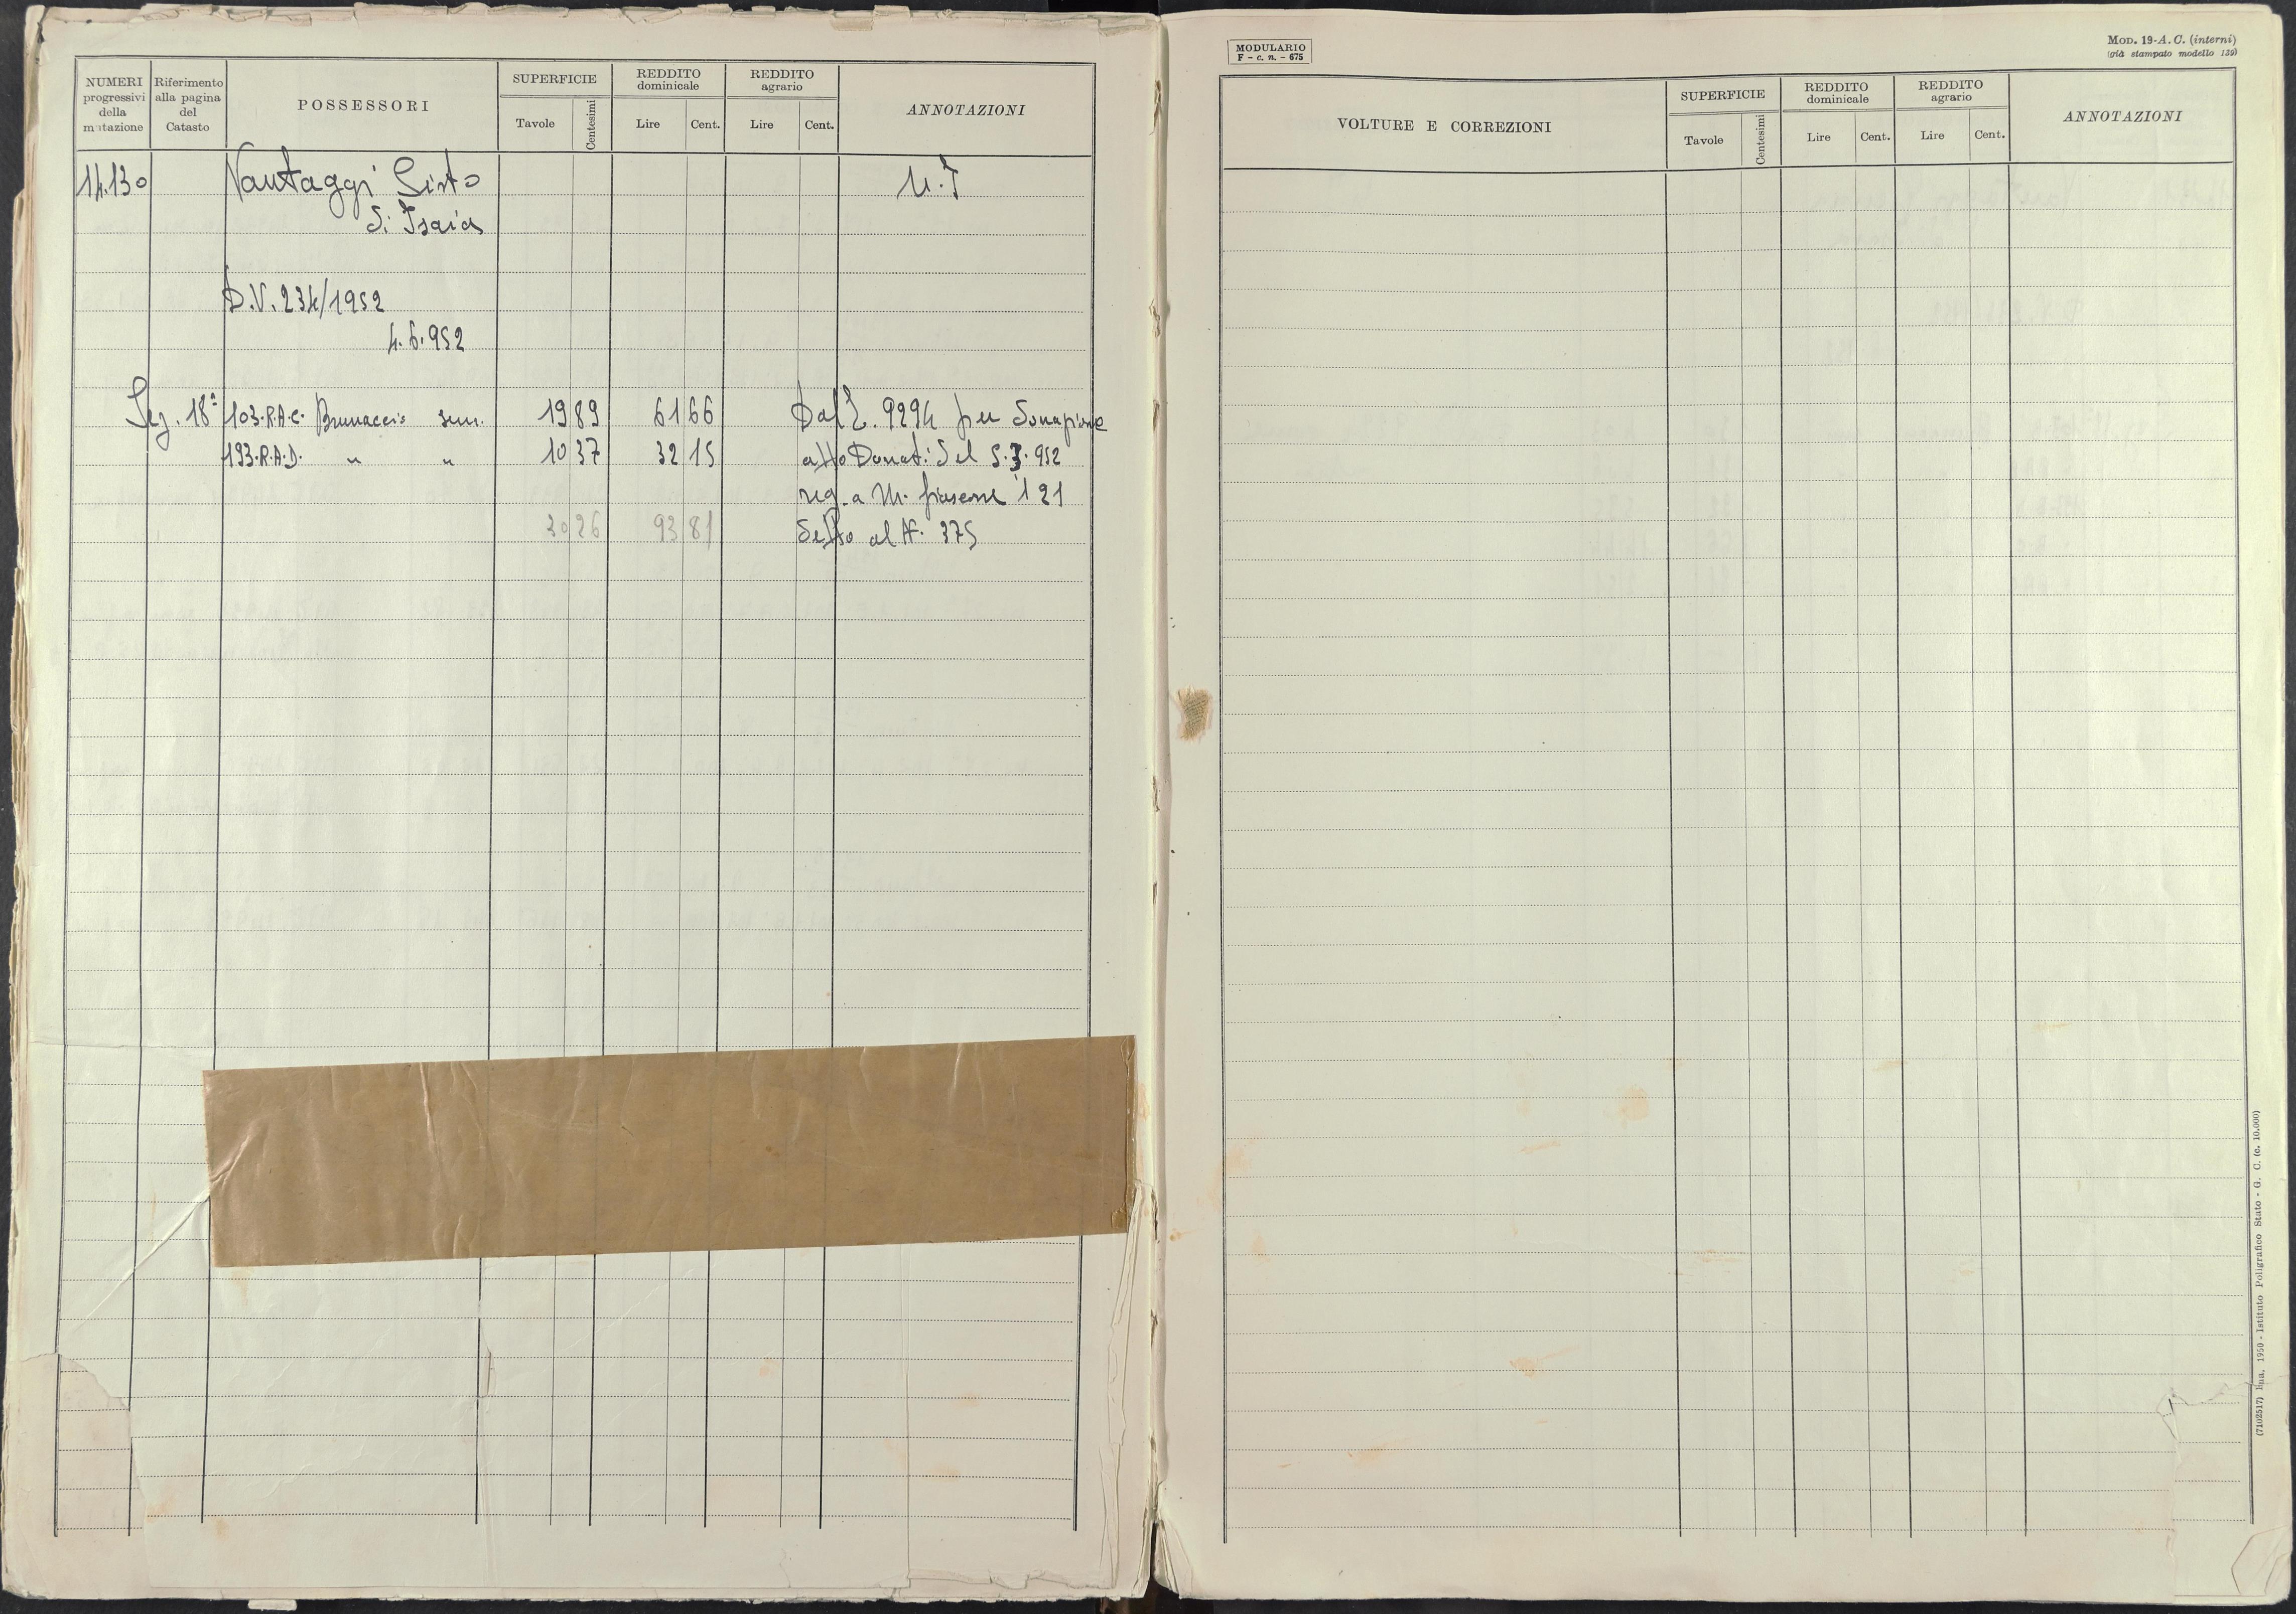 NUMERI progressivi della mutazione
Riferimento alla pagina del Catasto
POSSESSORI
SUPERFICIE
Tavole
Centesimi
REDDITO dominicale
Lire
Cent.
REDDITO agrario
Lire
Cent.
ANNOTAZIONI
14.130 Vantaggi Sisto M.I
di Isaia
D.V. 234/1952
4.6.952
Sez. 18ª 103.R.A.C. Brunaccio sem. 19 89 61 66 Dal 2. 9294 per Donazione
193.R.A.D. " " 10 37 32 15 atto Donati del 5.3.952
reg. a M. 121
30 26 93 81 detto al N. 375
MODULARIO
F - c. n. - 675
MOD. 19-A. C. (interni)
(già stampato modello 139)
VOLTURE E CORREZIONI
SUPERFICIE
Tavole
Centesimi
REDDITO dominicale
Lire
Cent.
REDDITO agrario
Lire
Cent.
ANNOTAZIONI
(7102517) 1950 - Istituto Poligrafico Stato - G. C. (c. 10.000)